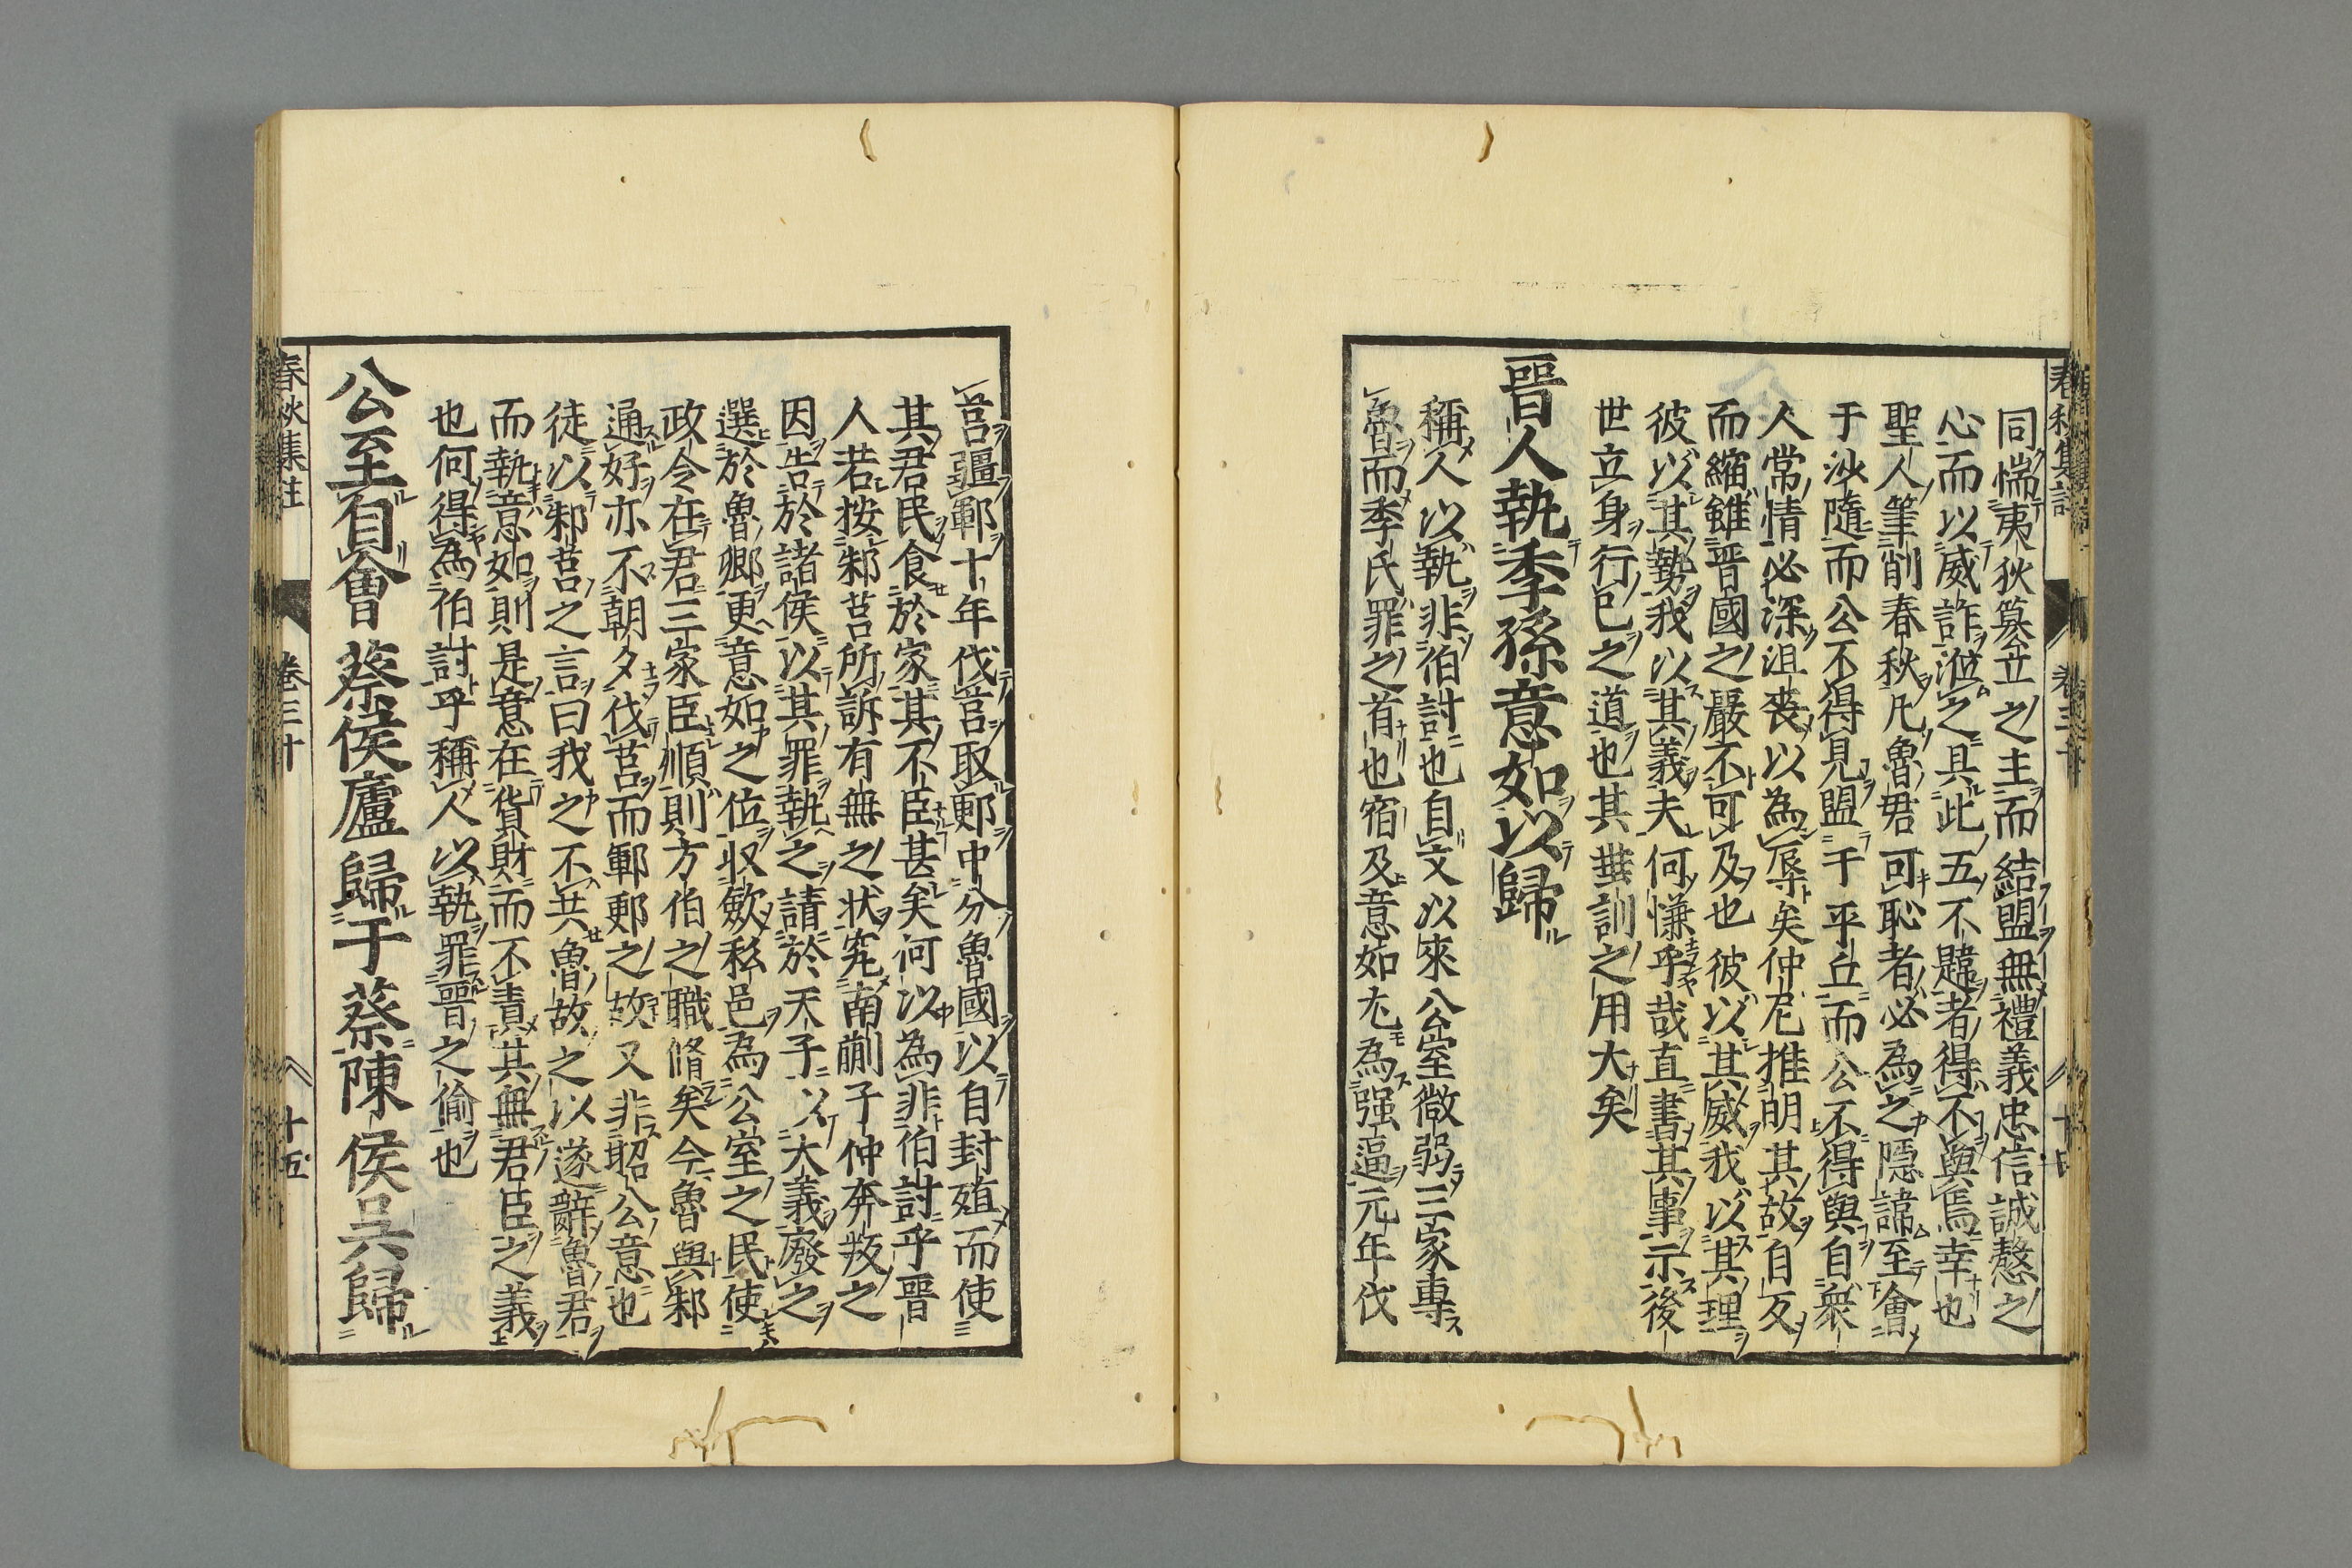 同惴夷狄篡立之主而結盟無禮義忠信誠慤之
心而以威詐涖之具此五不韙者得不與焉幸也
聖人筆削春秋凡魯君可恥者必為之隱諱至會
于沙隨而公不得見盟于平丘而公不得與自衆
人常情必深沮喪以為辱矣仲尼推明其故自反
而縮雖晋國之嚴不可及也彼以其威我以其理
彼以其勢我以其義夫何慊乎哉直書其事示後
世立身行已之道也其垂訓之用大矣
晋人執季孫意如以歸
稱人以執非伯討也自文以來公室微弱三家專
魯而季氏罪之首也宿及意如尢為强逼元年伐
莒疆鄆十年伐莒取郠中分魯國以自封殖而使
其君民食於家其不臣甚矣何以為非伯討乎晋
人若按邾莒所訴有無之状究南蒯子仲奔叛之
因告於諸侯以其罪執之請於天子以大義廢之
選於魯卿更意如之位収歛私邑為公室之民使
政令在君三家臣順則方伯之職脩矣今魯與邾
通好亦不朝夕伐莒而鄆郠之故又非昭公意也
徒以邾莒之言曰我之不共魯故之以遂辭魯君
而執意如則是意在貨財而不責其無君臣之義
也何得為伯討乎稱人以執罪晋之偷也
公至自會 蔡侯廬歸于蔡陳侯吳歸
春秋集註 卷三十 十五